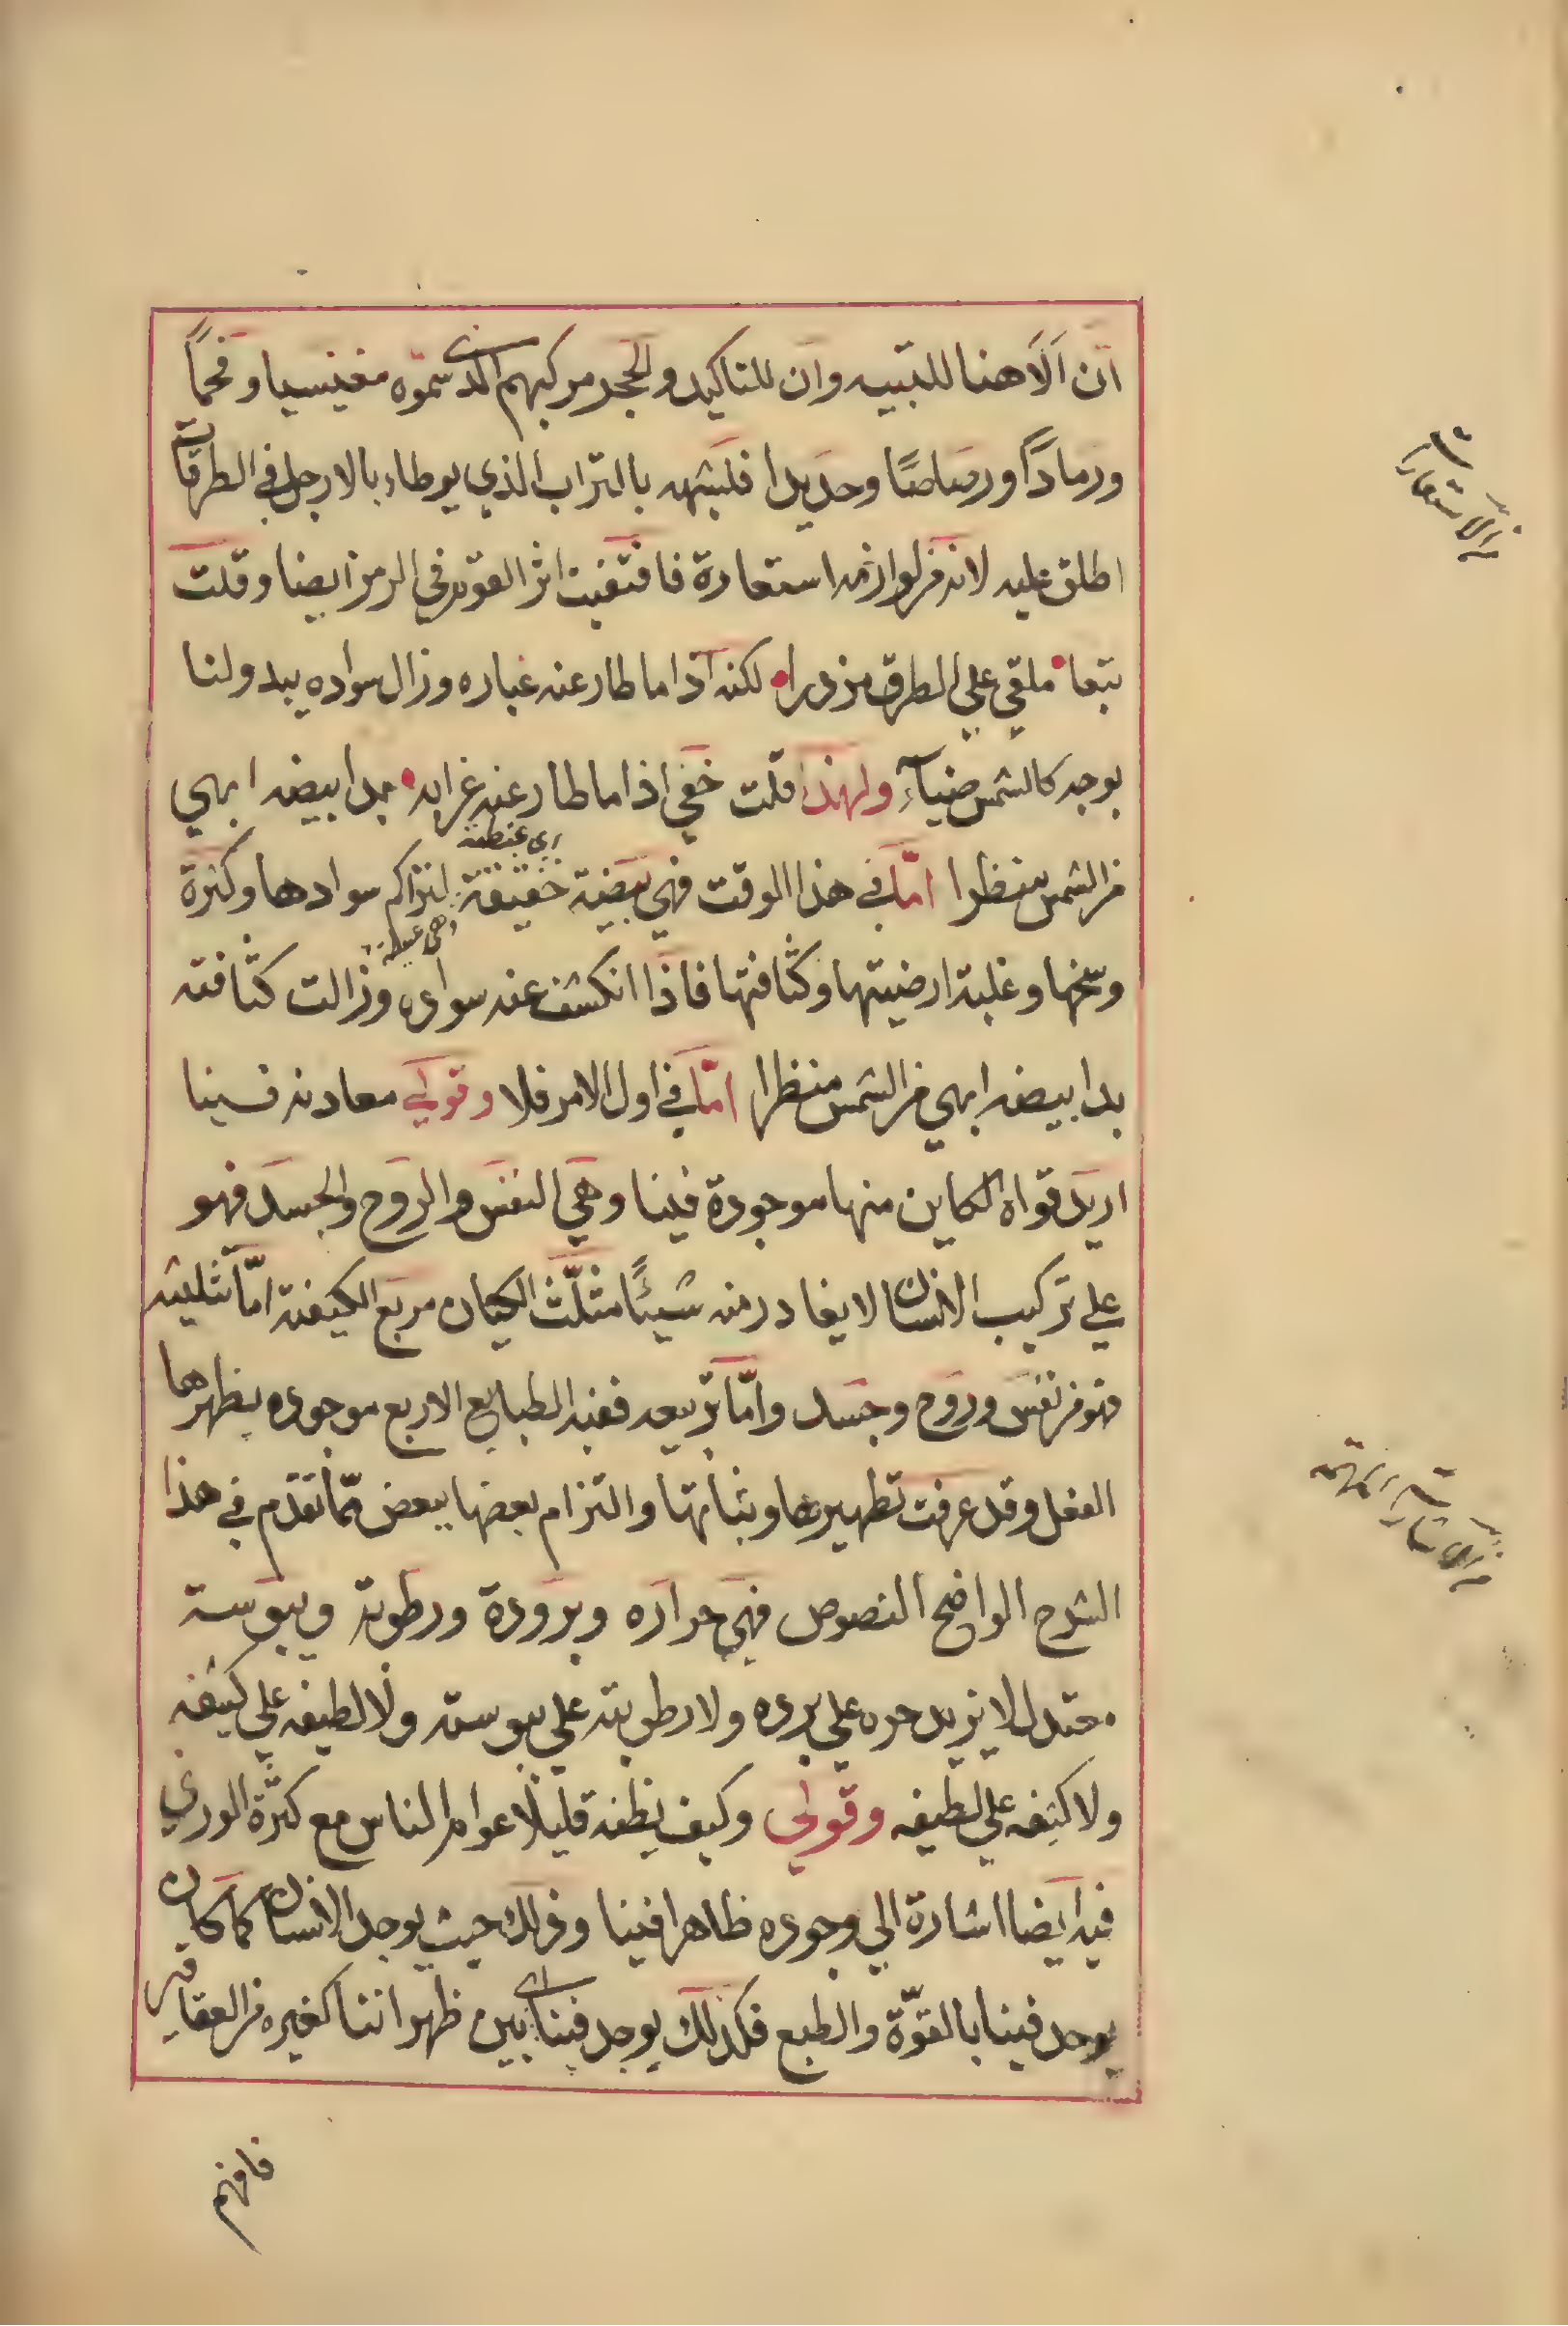 ان الا هنا للتبيه وان للتاكيد والحجر مركبهم الذي سموه مغنيسيا وفحماً
ورماداً ورصاصًا وحديدا فلشبهه بالتراب الذي يوطاء بالارجل في الطرقات
اطلق عليه لانه من لوازمه استعارة فاقتفيت اثر القوم في الرمز ايضا وقلت
تبعا ملقي علي الطرق من درا لكنه اذا ما طار عنه غباره وزال سواده يبدو لنا
بوجه كالشمس ضياءً ولهذا قلت خفي اذا ما طار عنه غرابه بدا بيضه ابهي
من الشمس منظرا امّا في هذا الوقت فهي بيضة خفيفة لتراكم سوادها وكثرة
وسخها وغلبة ارضيتها وكثافتها فاذا انكشف عنه سواده وزالت كثافته
بدا بيضه ابهي من الشمس منظرا امّا في اول الامر فلا وقولي معادنه فينا
اريد قواه الكاين منها موجودة فينا وهي النفس والروح والجسد فهو
علي تركيب الانسان لا يغادر منه شيئًا مثلّث الكيان مربع الكيفية امّا تثليثه
فهو من نفس وروح وجسد وامّا تربيعه ففيه الطبايع الاربع موجوده يظهرها
الفعل وقد عرفت تطهيرها وثباتها والتزام بعضها ببعض ممّا تقدم في هذا
الشرح الواضح النصوص فهي حراره وبرودة ورطوبة ويبوسة
معتدل لا يزيد حره علي برده ولا رطوبته علي يبوسته ولا لطيفه علي كثيفه
ولا كثيفه علي لطيفه وقولي وكيف يظنه قليلًا عوام الناس مع كثرة الوري
فيه ايضا اشارة الي وجوده ظاهرا فينا وذلك حيث يوجد الانسان كما كان
يوجد فينا بالقوّة والطبع فكذلك يوجد فينا اي بين ظهراننا كغيره من العقاقير
فافهم